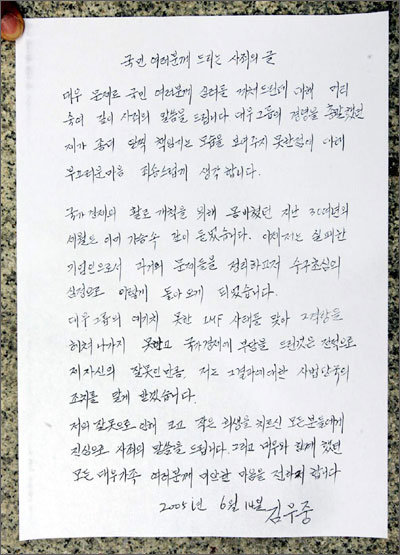 국민 여러분께 드리는 사죄의 글
대우 문제로 국민 여러분께 심려를 끼쳐드린데 대해 머리
숙여 깊이 사죄의 말씀을 드립니다 대우그룹의 경영을 총괄했던
제가 좀더 일찍 책임지는 모습을 보여주지 못한점에 대해
부끄러운마음 죄송스럽게 생각합니다.
국가경제의 활로 개척을 위해 몸바쳤던 지난 30여년의
세월도 이제 가슴속 깊이 묻었습니다. 이제저는 실패한
기업인으로서 과거의 문제들을 정리하고저 수구초심의
심정으로 이렇게 돌아오게 되었습니다.
대우그룹의 예기치 못한 IMF 사태를 맞아 그격랑을
헤쳐나가지 못하고 국가경제에 부담을 드린것은 전적으로
제자신의 잘못인만큼, 저는 그결과에대한 사법당국의
조치를 달게 받겠습니다.
저의잘못으로 인해 크고 작은 희생을 치르신 모든분들에게
진심으로 사죄의 말씀을 드립니다. 그리고 대우와 함께 했던
모든 대우가족 여러분께 미안한 마음을 전하려 합니다
2005년 6월 14일 김우중